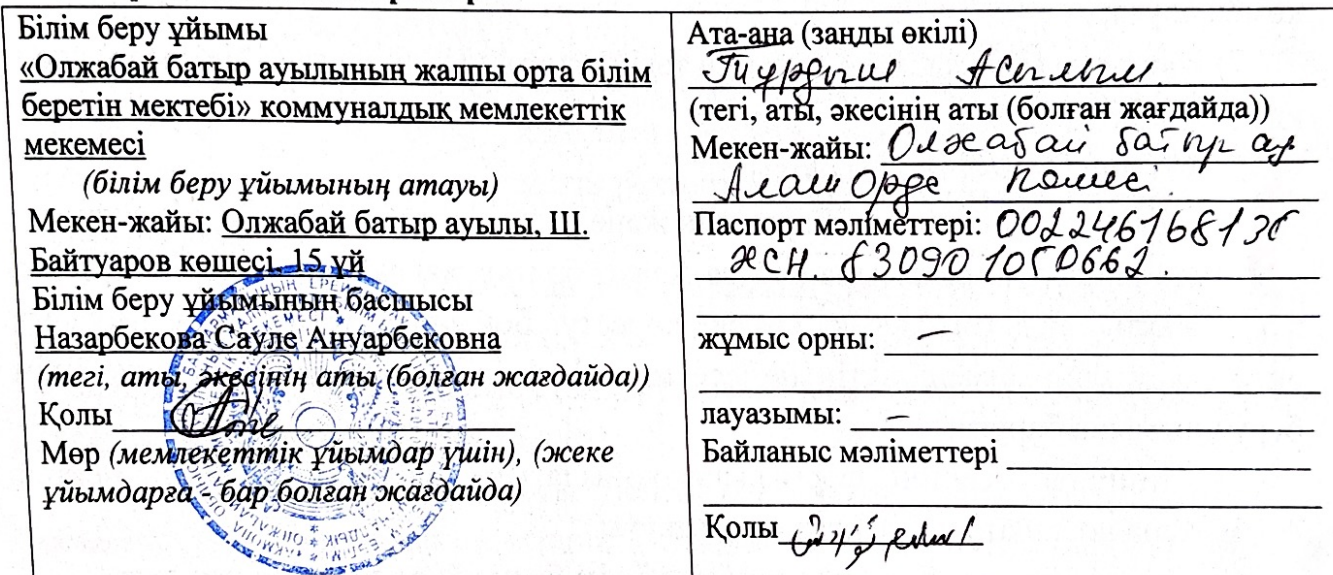 Білім беру ұйымы
«Олжабай батыр ауылының жалпы орта білім
беретін мектебі» коммуналдық мемлекеттік
мекемесі
(білім беру ұйымының атауы)
Мекен-жайы: Олжабай батыр ауылы, Ш.
Байтуаров көшесі, 15 үй
Білім беру ұйымының басшысы
Назарбекова Сауле Ануарбековна
(тегі, аты, әкесінің аты (болған жағдайда))
Қолы
Мөр (мемлекеттік ұйымдар үшін), (жеке
ұйымдарға - бар болған жағдайда)
Ата-ана (заңды өкілі)
(тегі, аты, әкесінің аты (болған жағдайда))
Мекен-жайы: Олжабай батыр ау
Алаш Орда көшесі
Паспорт мәліметтері:
ЖСН.
жұмыс орны: –
лауазымы: –
Байланыс мәліметтері
Қолы